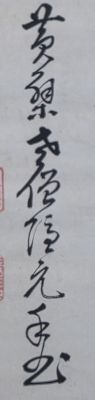 黄檗老僧隠元手書